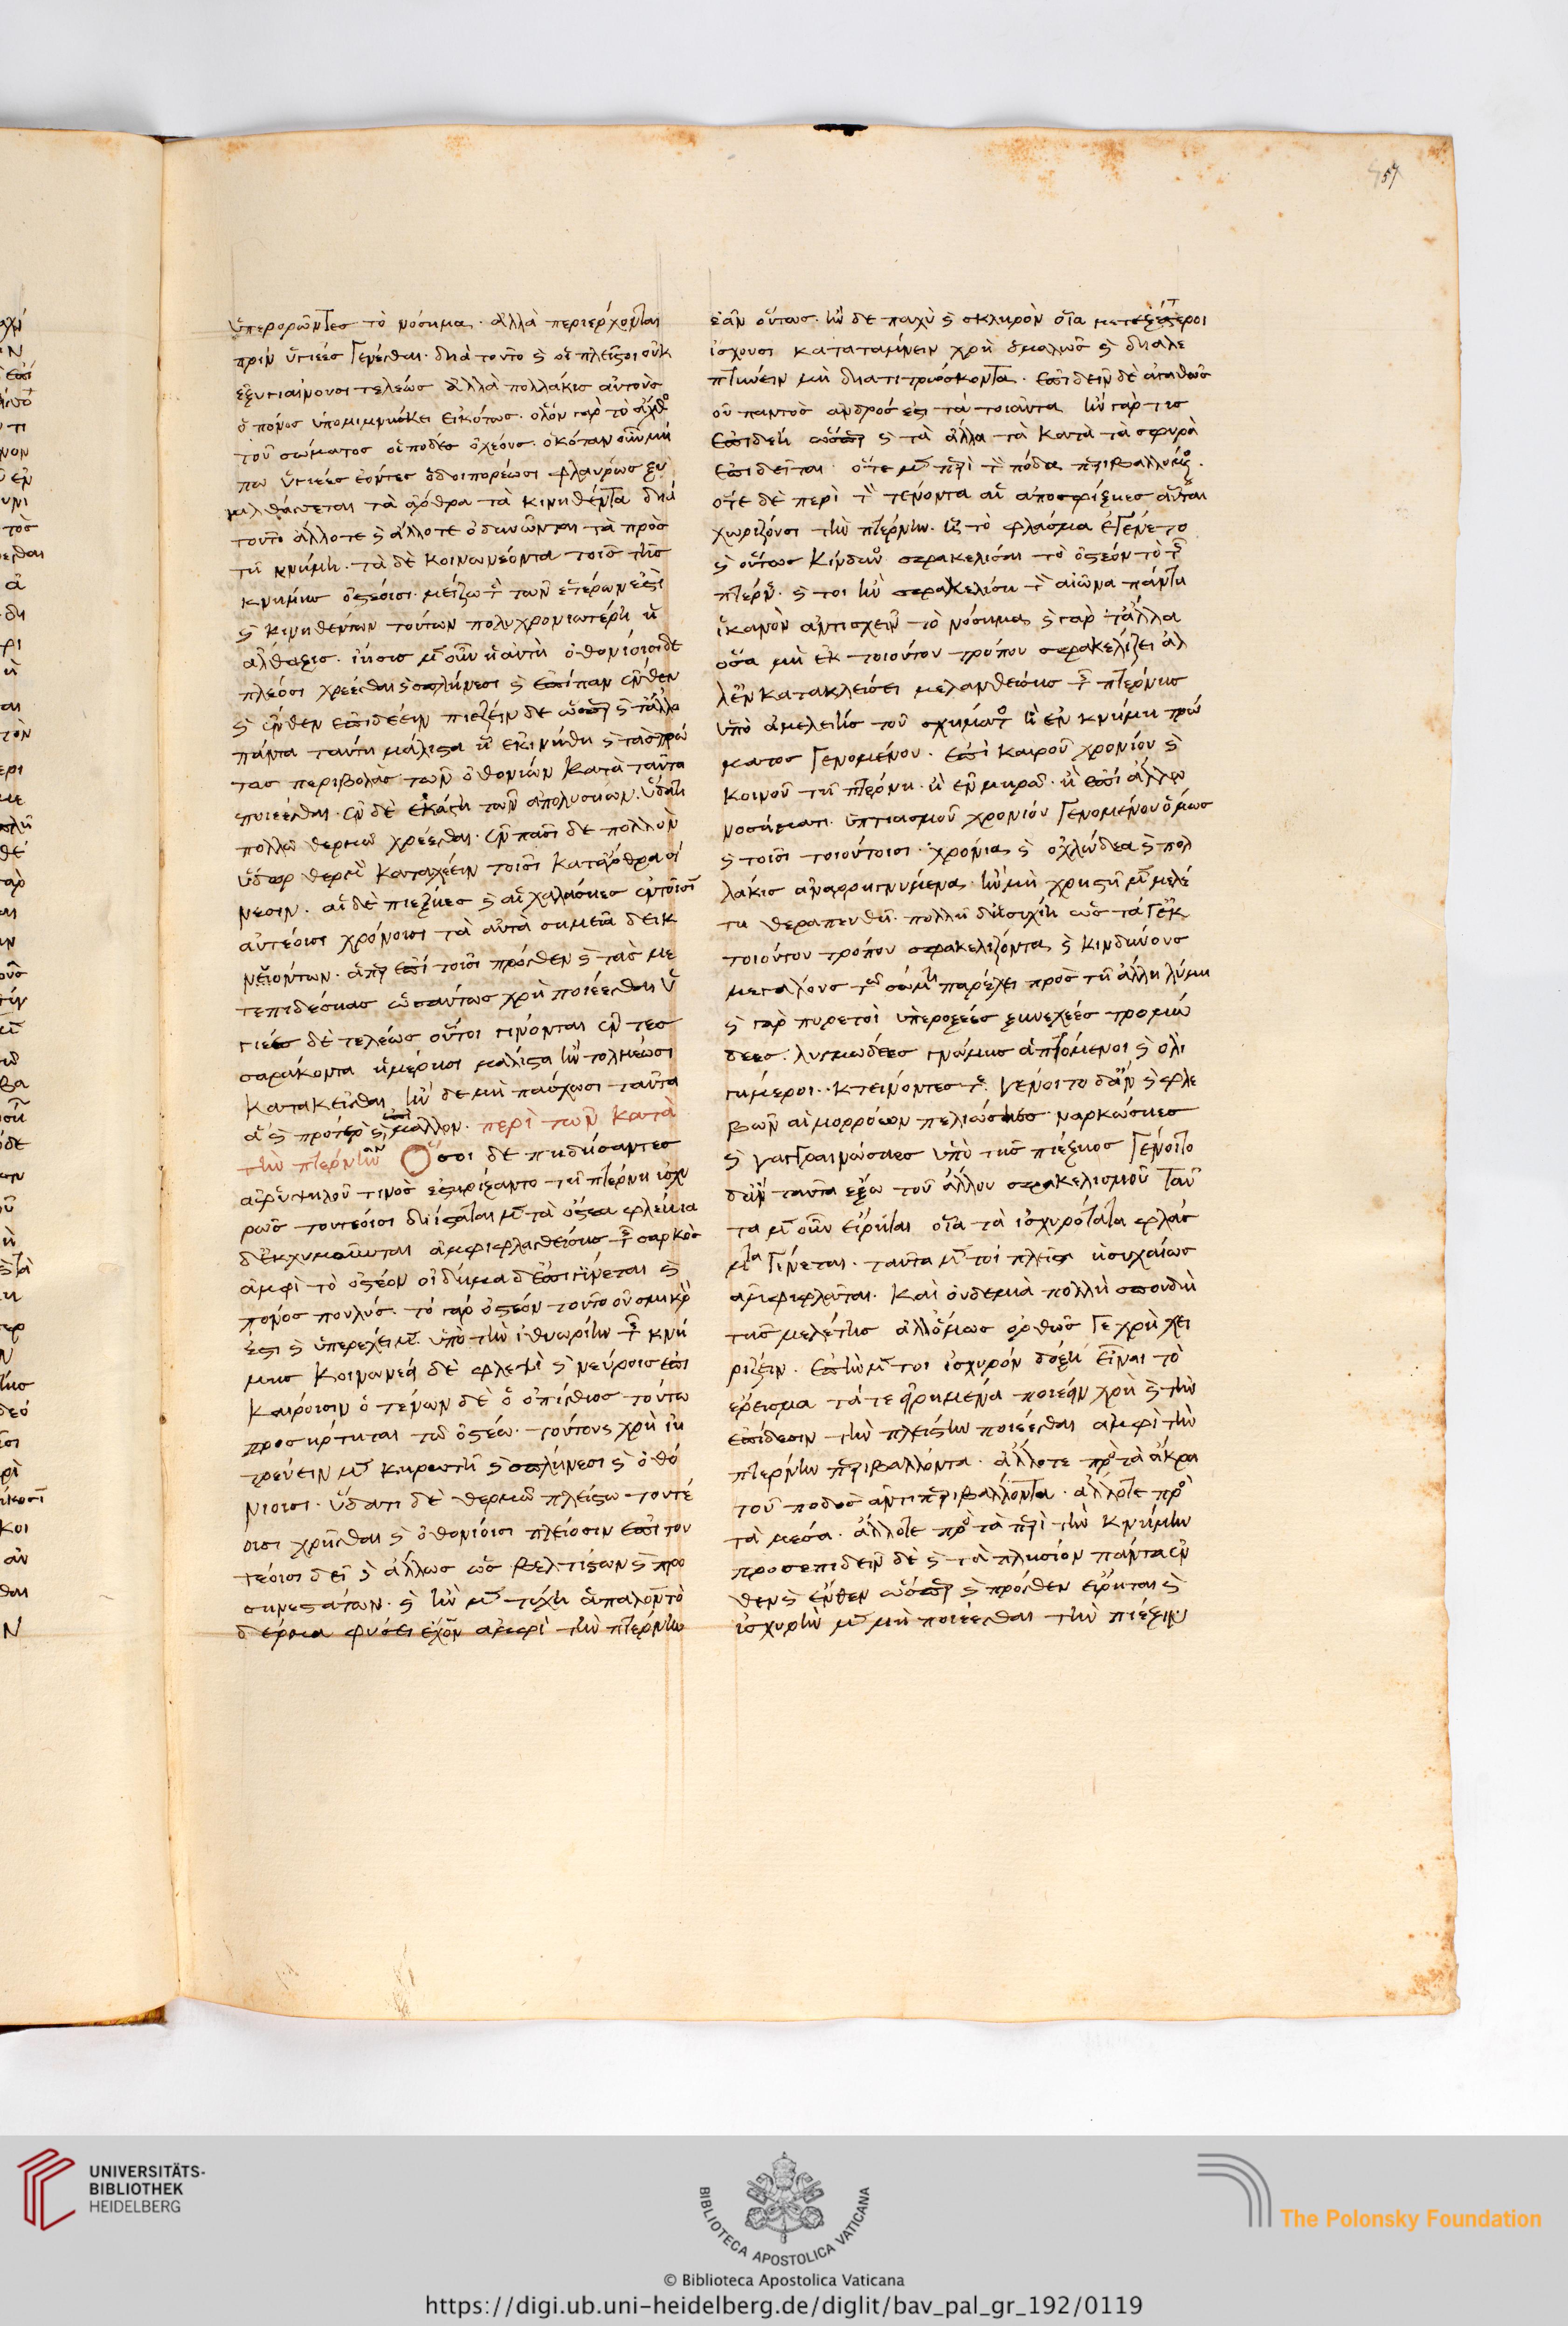 57
ὑπερορῶντες τὸ νόσημα· ἀλλὰ περιέρχονται
πρὶν ὑγιέες γενέσθαι· διὰ τοῦτο καὶ οἱ πλεῖστοι οὐκ
ἐξυγιαίνουσι τελέως ἀλλὰ πολλάκις αὐτοὺς
ὁ πόνος ὑπομιμνήσκει εἰκότως· ὅλον γὰρ τὸ ἄχθος
τοῦ σώματος οἱ πόδες ὀχέουσι· ὁκόταν οὖν μή
πω ὑγιέες ἐόντες ὁδοιπορέωσι φλαύρως
τὰ ἄρθρα τὰ κινηθέντα διὰ
τοῦτο ἄλλοτε καὶ ἄλλοτε ὀδυνῶνται τὰ πρὸς
τῇ κνήμῃ· τὰ δὲ κοινωνέοντα τοῖς τῆς
κνήμης ὀστέοισι· μείζω τε τῶν ἑτέρων ἐστὶ
καὶ κινηθέντων τούτων πολυχρονιωτέρη ἡ
ἄλθεξις· ἴησις μὲν οὖν ἡ αὐτὴ ὀθονίοισι δὲ
πλέοσι χρέεσθαι καὶ σπλήνεσι καὶ ἐπίπαν ἔνθεν
καὶ ἔνθεν ἐπιδέειν πιεζέειν δὲ ὥσπερ καὶ τἆλλα
πάντα ταύτῃ μάλιστα ᾗ ἐκινήθη καὶ τὰς πρώ
τας περιβολὰς τῶν ὀθονίων κατὰ ταῦτα
ποιέεσθαι· ἐν δὲ ἑκάστῃ τῶν ἀπολυσίων· ὕδατι
πολλῷ θερμῷ χρέεσθαι· ἐν πᾶσι δὲ πολλὸν
ὕδωρ θερμὸν καταχέειν τοῖσι κατ' ἄρθρα σί
νεσιν· αἱ δὲ πιέξιες καὶ αἱ χαλάσιες ἐν τοῖσι
αὐτέοισι χρόνοισι τὰ αὐτὰ σημεῖα δεικ
νυόντων· ἅπερ ἐπὶ τοῖσι πρόσθεν καὶ τὰς με
τεπιδέσιας ὡσαύτως χρὴ ποιέεσθαι ὑ
γιέες δὲ τελέως οὗτοι γίνονται ἐν τεσ
σαράκοντα ἡμέρῃσι μάλιστα ἢν τολμέωσι
κατακεῖσθαι ἢν δὲ μὴ πάσχωσι ταῦτα
ἃ καὶ πρότερον καὶ ἐπὶ μᾶλλον· περὶ τῶν κατὰ
τὴν πτέρνην Ὅσοι δὲ πηδήσαντες
ἀφ' ὑψηλοῦ τινος ἐστηρίξαντο τῇ πτέρνῃ ἰσχυ
ρῶς τουτέοισι διίσταται μὲν τὰ ὀστέα φλέβια
δ' ἐκχυμοῦνται ἀμφιφλασθείσης τῆς σαρκὸς
ἀμφὶ τὸ ὀστέον οἴδημα δ' ἐπιγίνεται καὶ
πόνος πουλύς· τὸ γὰρ ὀστέον τοῦτο οὐ σμικρὸν
ἐστι καὶ ὑπερέχει μὲν ὑπὸ τὴν ἰθυωρίην τῆς κνή
μης κοινωνέει δὲ φλεψὶ καὶ νεύροις ἐπι
καίροισιν ὁ τένων δὲ ὁ ὀπίσθιος τούτῳ
προσήρτηται τῷ ὀστέῳ· τούτους χρὴ ἰη
τρεύειν μὲν κηρωτῇ καὶ σπλήνεσι καὶ ὀθο
νίοισι· ὕδατι δὲ θερμῷ πλείστῳ τουτέ
οισι χρῆσθαι καὶ ὀθονίοισι πλείοσιν ἐπὶ του
τέοισι δεῖ καὶ ἄλλως ὡς βελτίστων καὶ προ
σηνεστάτων· καὶ ἢν μὲν τύχῃ ἁπαλὸν τὸ
δέρμα φύσει ἔχων ἀμφὶ τὴν πτέρνην
ἐᾶν οὕτως· ἢν δὲ παχὺ καὶ σκληρὸν οἷα μετεξέτεροι
ἴσχουσι κατατάμνειν χρὴ ὁμαλῶς καὶ διαλε
πτύνειν μὴ διατιτρώσκοντα· ἐπιδεῖν δὲ ἀγαθῶς
οὐ παντὸς ἀνδρός ἐστι τὰ τοιαῦτα ἢν γάρ τις
ἐπιδέῃ ὥσπερ καὶ τὰ ἄλλα τὰ κατὰ τὰ σφυρὰ
ἐπιδεῖται· ὁτὲ μὲν περὶ τὸν πόδα περιβαλλόμενος·
ὁτὲ δὲ περὶ τὸν τένοντα αἱ ἀποσφίγξιες αὗται
χωρίζουσι τὴν πτέρνην· ᾗ τὸ φλάσμα ἐγένετο
καὶ οὕτως κίνδυνος σφακελίσαι τὸ ὀστέον τὸ τῆς
πτέρνης· καί τοι ἢν σφακελίσῃ τὸν αἰῶνα πάντα
ἱκανὸν ἀντισχεῖν τὸ νόσημα καὶ γὰρ τἆλλα
ὅσα μὴ ἐκ τοιούτου τρόπου σφακελίζει ἀλ
λ' ἐν κατακλείσει μελανθείσης τῆς πτέρνης
ὑπὸ ἀμελείης τοῦ σχήματος ἢ ἐν κνήμῃ τρώ
ματος γενομένου· ἐπὶ καιροῦ χρονίου καὶ
κοινοῦ τῇ πτέρνῃ· ἢ ἐν μηρῷ· ἢ ἐπὶ ἄλλῳ
νοσήματι ὑπτιασμοῦ χρονίου γενομένου ὅμως
καὶ τοῖσι τοιούτοισι· χρόνια καὶ ὀχλώδεα καὶ πολ
λάκις ἀναρρηγνύμενα· ἢν μὴ χρηστῇ μὲν μελέ
τῃ θεραπευθῇ· πολλῇ δὲ ἡσυχίῃ ὡς τά γε ἐκ
τοιούτου τρόπου σφακελίζοντα καὶ κινδύνους
μεγάλους τῷ σώματι παρέχει πρὸς τῇ ἄλλῃ λύμῃ
καὶ γὰρ πυρετοὶ ὑπεροξέες ξυνεχέες τρομώ
δεες· λυγμώδεες γνώμης ἁπτόμενοι καὶ ὀλι
γήμεροι· κτείνοντες· γένοιτο δ' ἂν καὶ φλε
βῶν αἱμορρόων πελιώσιες ναρκώσιες
καὶ γαγγραινώσιες ὑπὸ τῆς πιέξιος γένοιτο
δ' ἂν ταῦτα ἔξω τοῦ ἄλλου σφακελισμοῦ ταῦ
τα μὲν οὖν εἴρηται οἷα τὰ ἰσχυρότατα φλάσ
ματα γίνεται· ταῦτα μέν τοι πλεῖστα ἡσυχαίως
ἀμφιφλᾶται· καὶ οὐδεμία πολλὴ σπουδὴ
τῆς μελέτης ἀλλ' ὅμως ὀρθῶς γε χρὴ χει
ρίζειν· ἐπὴν μέν τοι ἰσχυρὸν δόξῃ εἶναι τὸ
ἔρεισμα τά τε εἰρημένα ποιέειν χρὴ καὶ τὴν
ἐπίδεσιν τὴν πλείστην ποιέεσθαι ἀμφὶ τὴν
πτέρνην περιβάλλοντα· ἄλλοτε πρὸς τὰ ἄκρα
τοῦ ποδὸς ἀντιπεριβάλλοντα· ἄλλοτε πρὸς
τὰ μέσα· ἄλλοτε πρὸς τὰ περὶ τὴν κνήμην
προσεπιδεῖν δὲ καὶ τὰ πλησίον πάντα ἔν
θεν καὶ ἔνθεν ὥσπερ καὶ πρόσθεν εἴρηται καὶ
ἰσχυρὴν μὲν μὴ ποιέεσθαι τὴν πίεξιν
UNIVERSITÄTS-
BIBLIOTHEK
HEIDELBERG
BIBLIOTECA APOSTOLICA VATICANA
The Polonsky Foundation
© Biblioteca Apostolica Vaticana
https://digi.ub.uni-heidelberg.de/diglit/bav_pal_gr_192/0119